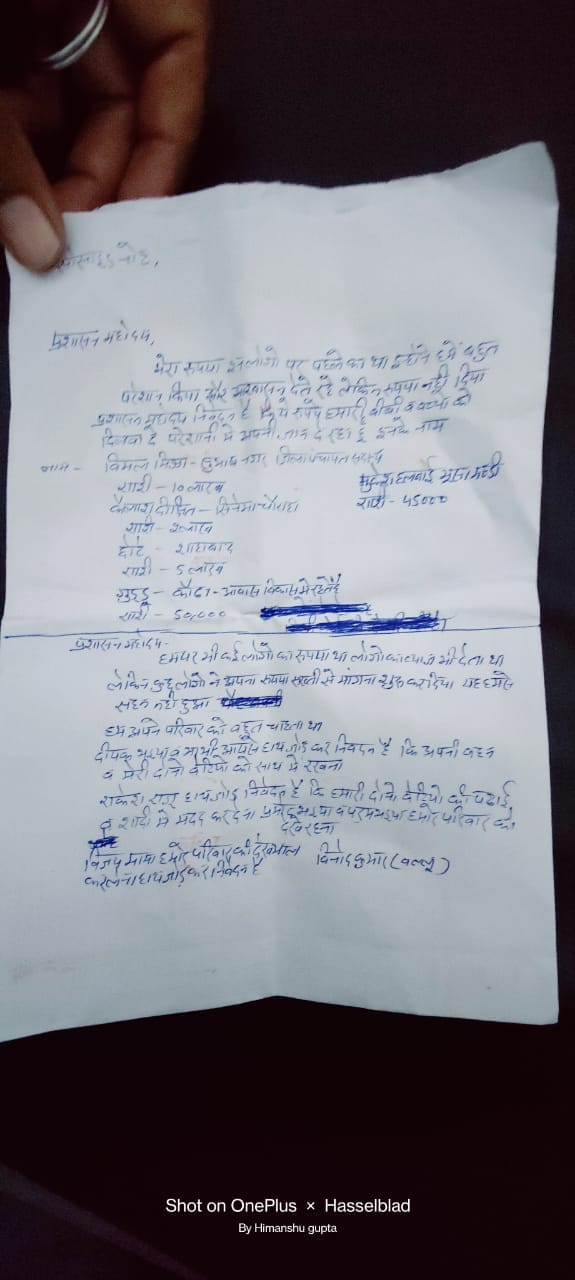 सुसाइड नोट,
प्रशासन महोदय,
मेरा रूपया इन लोगो पर पहले का था इन्होंने हमें बहुत
परेशान किया और आश्वासन देते रहे लेकिन रूपया नही दिया
प्रशासन महोदय निवेदन है कि ये रूपये हमारी बीवी व बच्चो को
दिलवा दे परेशानी मे अपनी जान दे रहा हू इनके नाम
नाम - विमल मिश्रा - सुभाष नगर जिला पंचायत सदस्य
राशी - 10 लाख
मुकेश हलवाई भूसा मण्डी
राशी - 45000
कैलाश दीक्षित - सिनेमा चौराहा
राशी - 2 लाख
छोटे - शाहाबाद
राशी - 5 लाख
गुड्डू - कौढा - आवास विकास मे रहते है
राशी - 50,000
प्रशासन महोदय -
हमपर भी कई लोगो का रूपया था लोगो का व्याज भी देता था
लेकिन कुछ लोगो ने अपना रूपया सख्ती से मांगना शुरू कर दिया यह हमसे
सहन नही हुआ
हम अपने परिवार को बहुत चाहता था
दीपक भइया व भाभी आपसे हाथ जोड़ कर निवेदन है कि अपनी बहन
व मेरी दोनो बेटियो को साथ मे रखना
राकेश राजू हाथ जोड़ निवेदन है कि हमारी दोनो बेटियो की पढाई
व शादी मे मदद कर देना प्रमोद भइया व भइया हमारे परिवार को
देखे रहना
विजय मामा हमारे परिवार की देखभाल
कर लेना हाथ जोड़ कर निवेदन है
विनोद कुमार (बल्लू)
Shot on OnePlus × Hasselblad
By Himanshu gupta